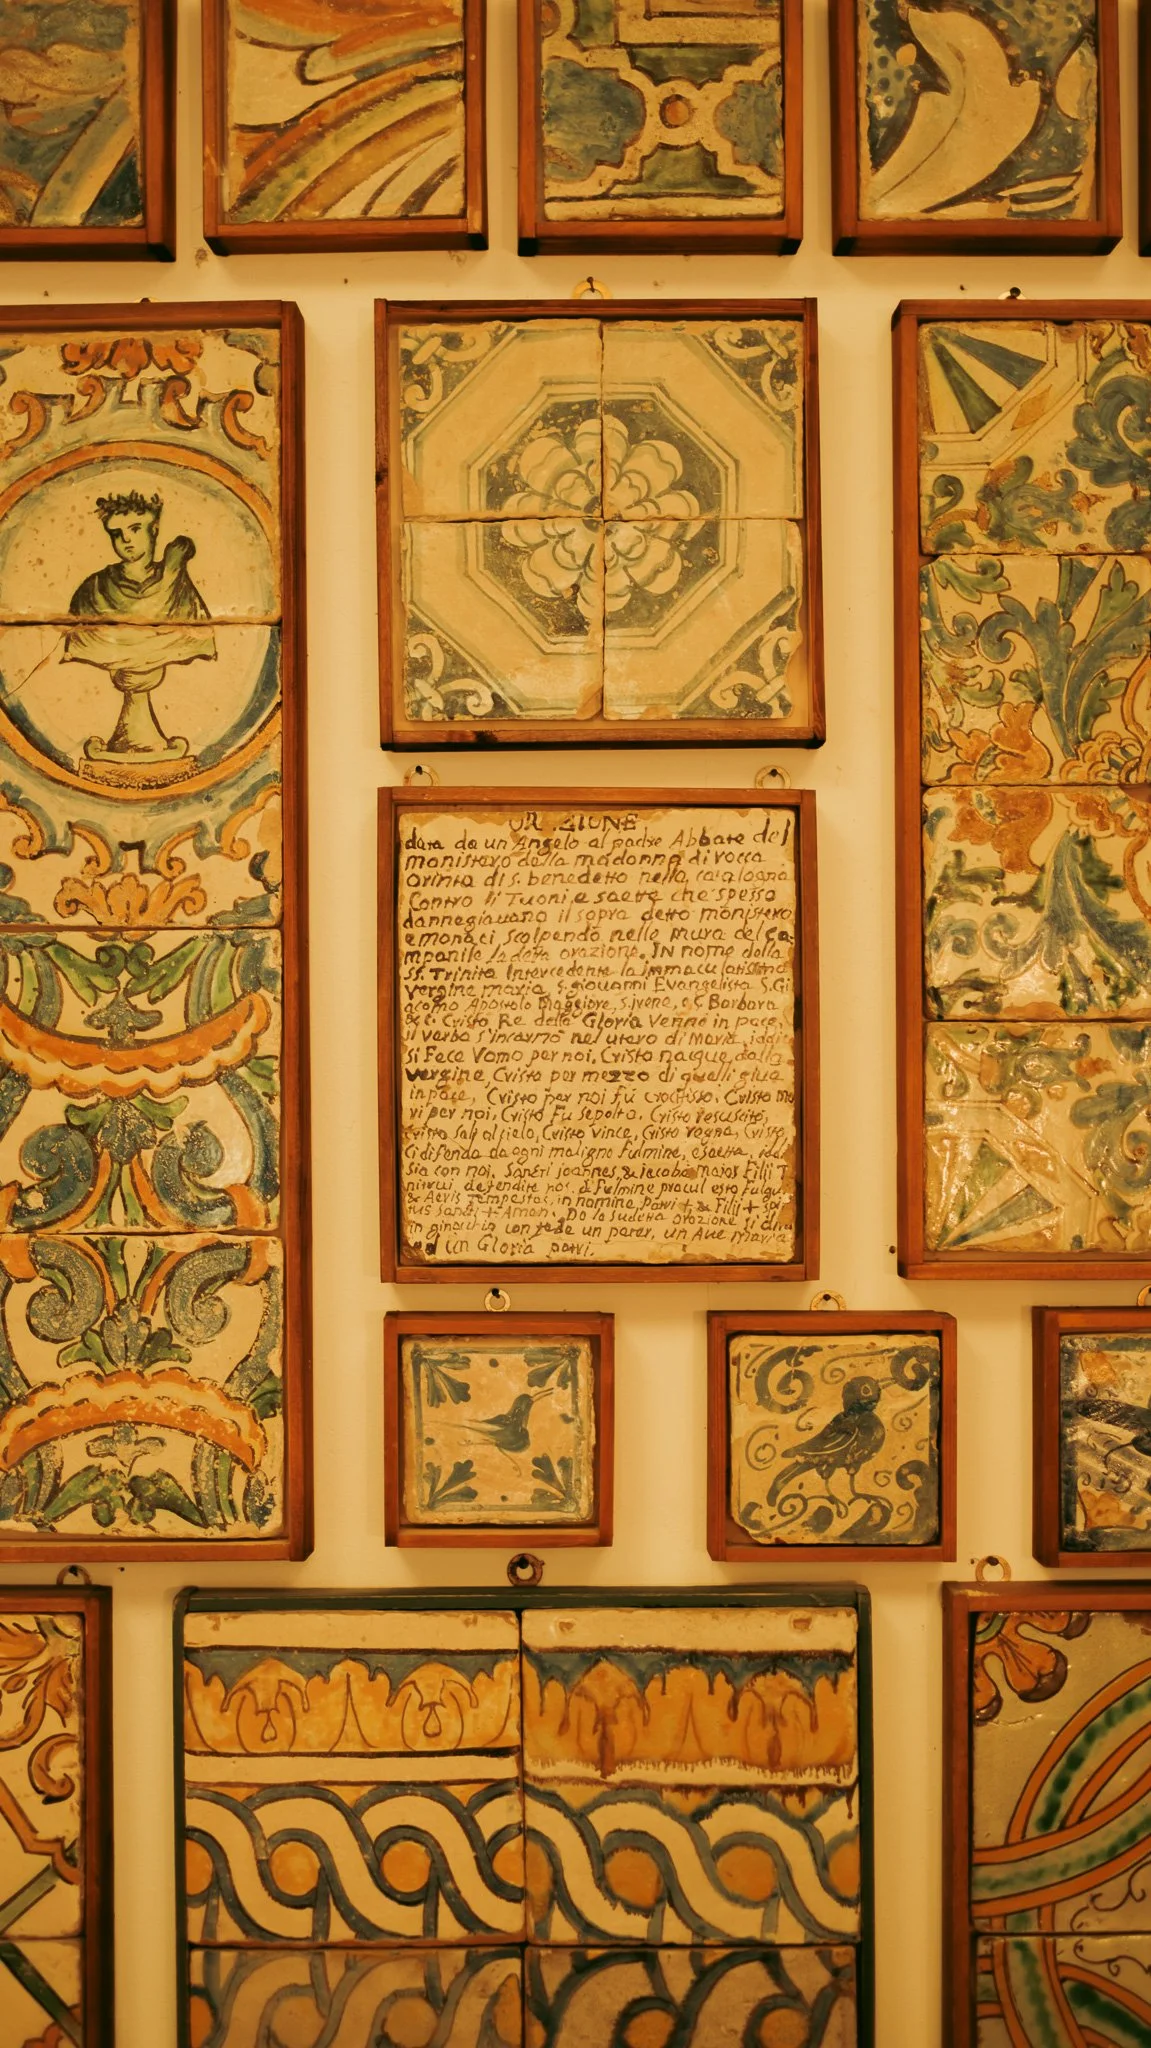 ORAZIONE
data da un Angelo al padre Abbate del
monistero della madonna di rocca
Orinta di s. benedetto nella, catalogna
Contro li Tuoni, e saette che spesso
dannegiavano il sopra detto monistero
e monaci scolpendo nelle mura del ca-
mpanile la detta orazione. IN nome della
SS. Trinita Intercedente la immaculatissima
vergine maria, S. giovanni Evangelista S. Gi
acomo Apostolo Maggiore, S. irene, e S. Barbara
&c. Cristo Re della Gloria Venne in pace,
il verbo s'incarnò nel utero di Maria, iddio
si Fece Vomo per noi, Cristo nacque dalla
vergine, Cristo per mezzo di quelli giva
in pace, Cristo per noi fù crocifisso. Cristo mo
ri per noi, Cristo Fu sepolto, Cristo resuscitò,
Cristo Sali al cielo, Cristo vince, Cristo regna, Cristo
Ci difenda da ogni maligno fulmine, e saetta, iddio
sia con noi. Sancti ioannes, & iacobe maior Filij T
nitrui, defendite nos, a Fulmine procul esto Fulgur
& Aeris Tempestas, in nomine Patri + & Filij + Spi
tus Sancti + Amen. Da la sudetta orazione si dica
in ginocchio con fede un pater, un Ave Maria
ed un Gloria patri.